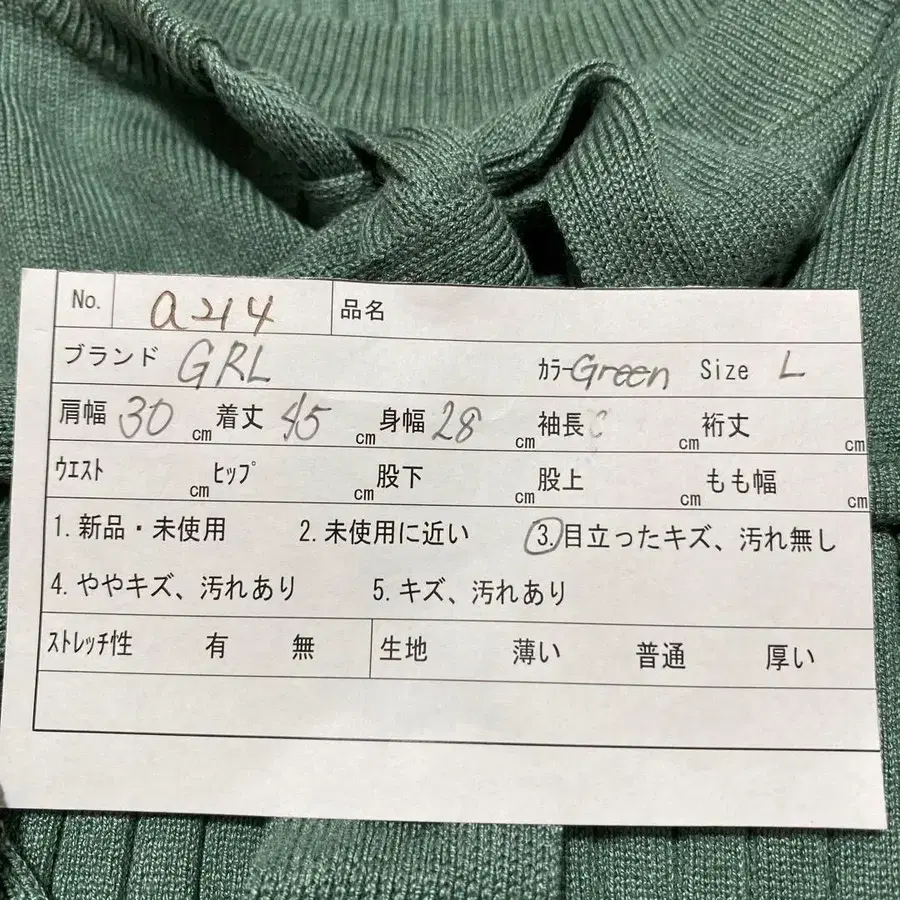 No. a214 品名
ブランド GRL カラー Green Size L
肩幅 30 cm 着丈 45 cm 身幅 28 cm 袖長 cm 裄丈 cm
ウエスト cm ヒップ 股下 cm 股上 cm もも幅 cm
1. 新品・未使用 2. 未使用に近い 3. 目立ったキズ、汚れ無し
4. ややキズ、汚れあり 5. キズ、汚れあり
ストレッチ性 有 無 生地 薄い 普通 厚い